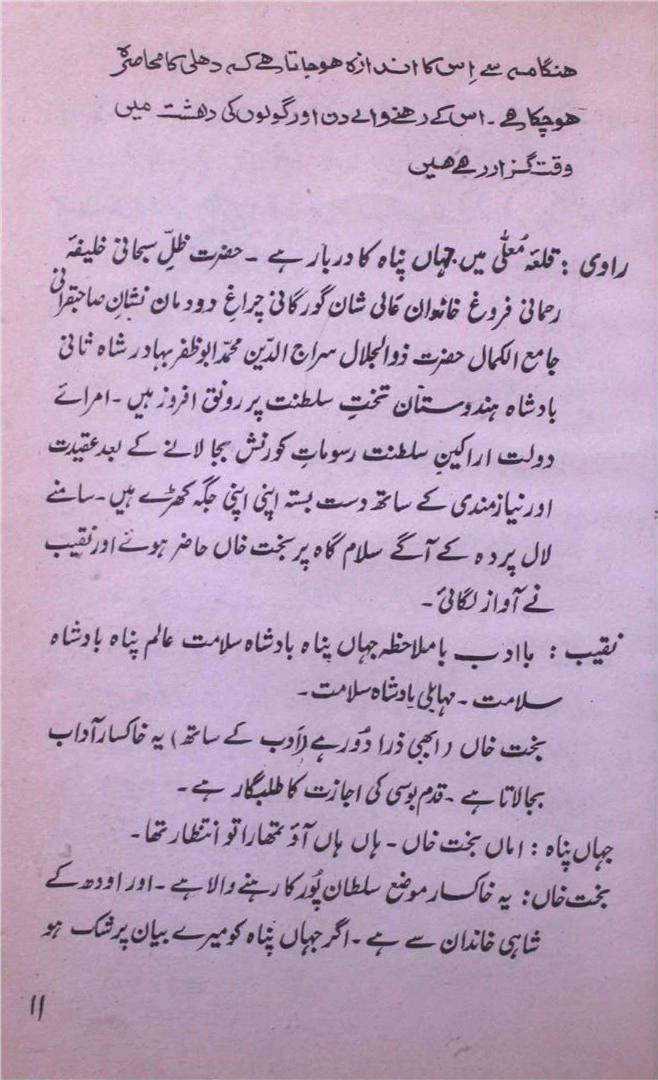 ھنگامہ سے اِس کا اندازہ ھوجاتا ھے کہ دھلی کا محاصرہ
ھوچکا ھے۔ اس کے رھنے والے دن اور گولوں کی دھشت میں
وقت گزار رھے ھیں
راوی : قلعۂ مُعلّٰی میں جہاں پناہ کا دربار ہے۔ حضرت ظلِّ سبحانی خلیفۂ
رحمانی فروغ خاندان عالی شان گورگانی چراغِ دودمان نشانِ صاحبقرانی
جامع الکمال حضرت ذوالجلال سراج الدّین محمّد ابوظفر بہادر شاہ ثانی
بادشاہ ہندوستان تختِ سلطنت پر رونق افروز ہیں۔ امرائے
دولت اراکینِ سلطنت رسوماتِ کورنش بجا لانے کے بعد عقیدت
اور نیازمندی کے ساتھ دست بستہ اپنی اپنی جگہ کھڑے ہیں۔ سامنے
لال پردہ کے آگے سلام گاہ پر بخت خاں حاضر ہوئے اور نقیب
نے آواز لگائی۔
نقیب : باادب باملاحظہ جہاں پناہ بادشاہ سلامت عالم پناہ بادشاہ
سلامت۔ مہابلی بادشاہ سلامت۔
بخت خاں (ابھی ذرا دُور ہے (اَدب کے ساتھ) یہ خاکسار آداب
بجالاتا ہے۔ قدم بوسی کی اجازت کا طلبگار ہے۔
جہاں پناہ : اماں بخت خاں۔ ہاں ہاں آؤ تمھارا تو انتظار تھا۔
بخت خاں : یہ خاکسار موضع سلطان پُور کا رہنے والا ہے۔ اور اودھ کے
شاہی خاندان سے ہے۔ اگر جہاں پناہ کو میرے بیان پر شک ہو
۱۱